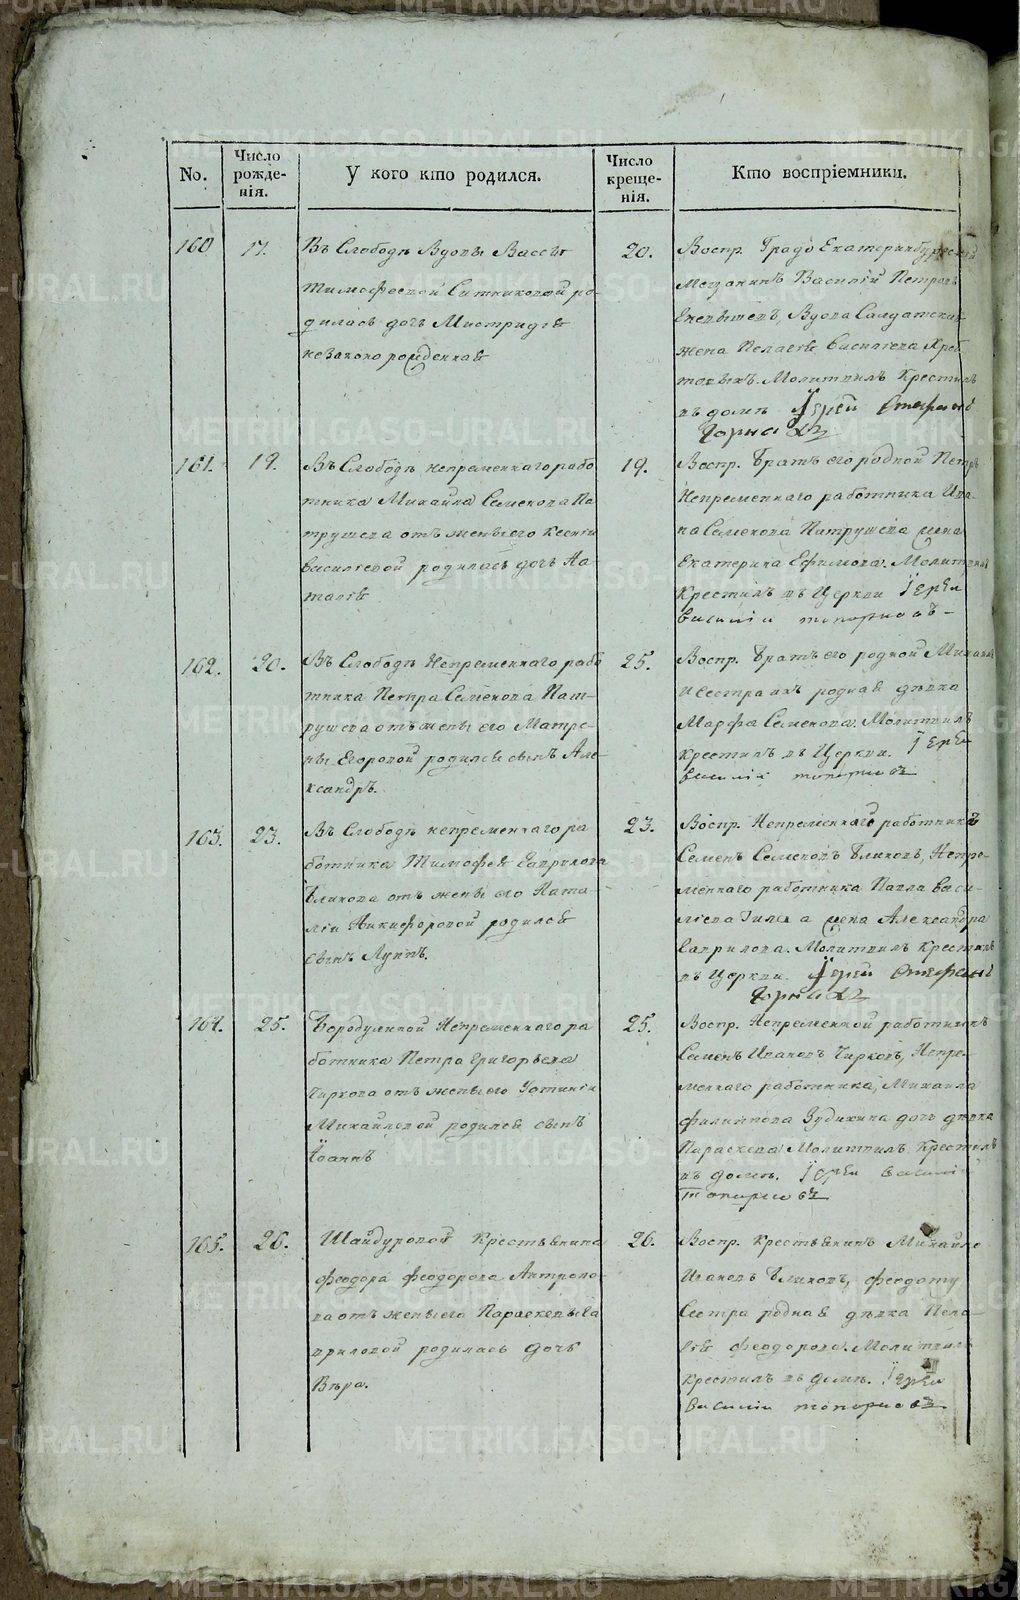 No.
Число рожде-нія.
У кого кто родился.
Число креще-нія.
Кто воспріемники.
160
17.
Въ Слободѣ Вдовы Вассы
Тимофеевой Ситниковой ро-
дилась дочь
незаконорожденная
20.
Воспр. Градо Екатеринбургской
Мещанинъ Василій Петровъ
Вдова Салдатская
жена Пелагея Васильева
Молитвилъ Крестилъ
въ домѣ Іерей Стефанъ
161.
19.
Въ Слободѣ непременнаго рабо
тника Михайла Семенова Па
трушева отъ жены его Ксеніи
Васильевой родилась дочь На
талія
19.
Воспр. Братъ его родной Петръ
Непременнаго работника Ива-
на Семенова Патрушева жена
Екатерина Ефимова. Молитвилъ
Крестилъ въ Церкви Іерей
Василіи Топорковъ
162.
20.
Въ Слободѣ Непременнаго рабо
тника Петра Семенова Пат-
рушева отъ жены его Матре-
ны Егоровой родился сынъ Але-
ксандръ.
25.
Воспр. Братъ его родной Михаилъ
и Сестра ихъ родная дѣвка
Марфа Семенова. Молитвилъ
Крестилъ въ Церкви. Іерей
Василіи Топорковъ
163.
23.
Въ Слободѣ непременнаго ра
ботника Тимофея Гаврилова
Блинова отъ жены его Ната-
ліи Никифоровой родился
сынъ Луппъ.
23.
Воспр. Непременнаго работника
Семенъ Семеновъ Блиновъ, Непре-
меннаго работника Павла Васи-
льева жена Александра
Гаврилова. Молитвилъ Крестилъ
въ Церкви. Іерей Стефанъ
164.
25.
Бородулиной Непременнаго ра
ботника Петра Григорьева
Чиркова отъ жены его Устиніи
Михайловой родился сынъ
Іоаннъ
25.
Воспр. Непременной работникъ
Семенъ Ивановъ Чирковъ, Непре-
меннаго работника, Михаила
Филиппова Зудихина дочь дѣвка
Параскева Молитвилъ Крестилъ
въ домѣ. Іерей Василіи
Топорковъ
165.
26.
Шайдуровой Крестьянина
Феодора Феодорова Антропо-
ва отъ жены его Параскевы Га
вриловой родилась дочь
Вѣра.
26.
Воспр. Крестьянинъ Михайло
Ивановъ Блиновъ, Феодоту
Сестра родная дѣвка Пела
гея Феодорова. Молитвилъ
Крестилъ въ домѣ. Іерей
Василіи Топорковъ
METRIKI.GASO-URAL.RU